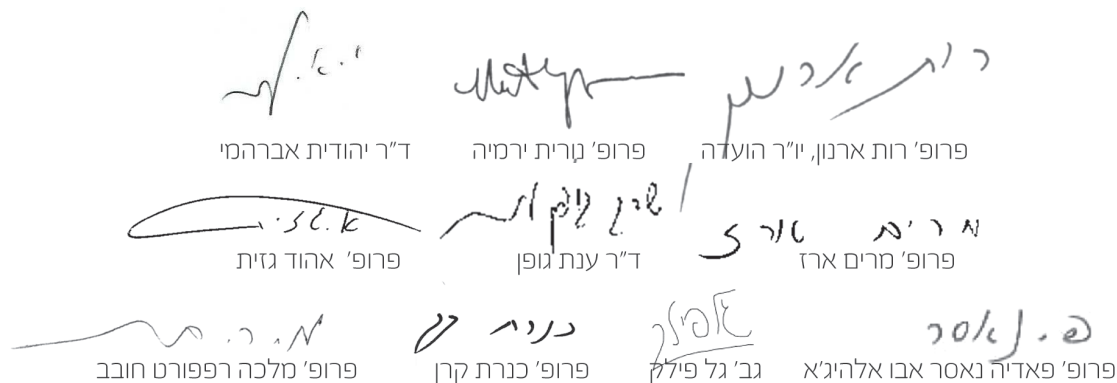 רות ארנון
פרופ' רות ארנון, יו"ר הועדה
פרופ' נורית ירמיה
ד"ר יהודית אברהמי
מרים ארז
פרופ' מרים ארז
ד"ר ענת גופן
א. גזי
פרופ' אהוד גזית
פ. נאסר
כנרת קרן
פרופ' פאדיה נאסר אבו אלהיג'א
גב' גל פילק
פרופ' כנרת קרן
פרופ' מלכה רפפורט חובב